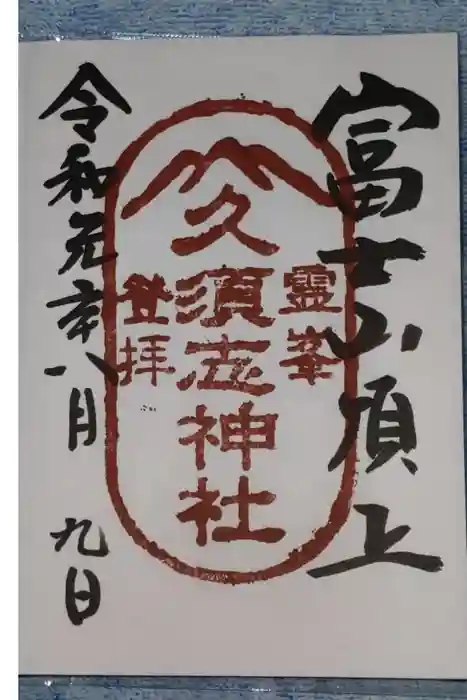 富士山頂上
霊峯
久須志神社
登拝
令和元年八月九日